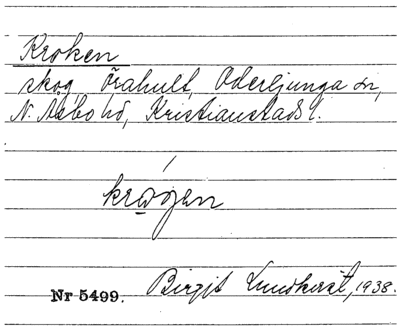 Kroken
skog Örahult, Oderljunga sn,
N. Åsbo hd, Kristianstads l.
Nr 5499. Birgit Lundkvist, 1938.